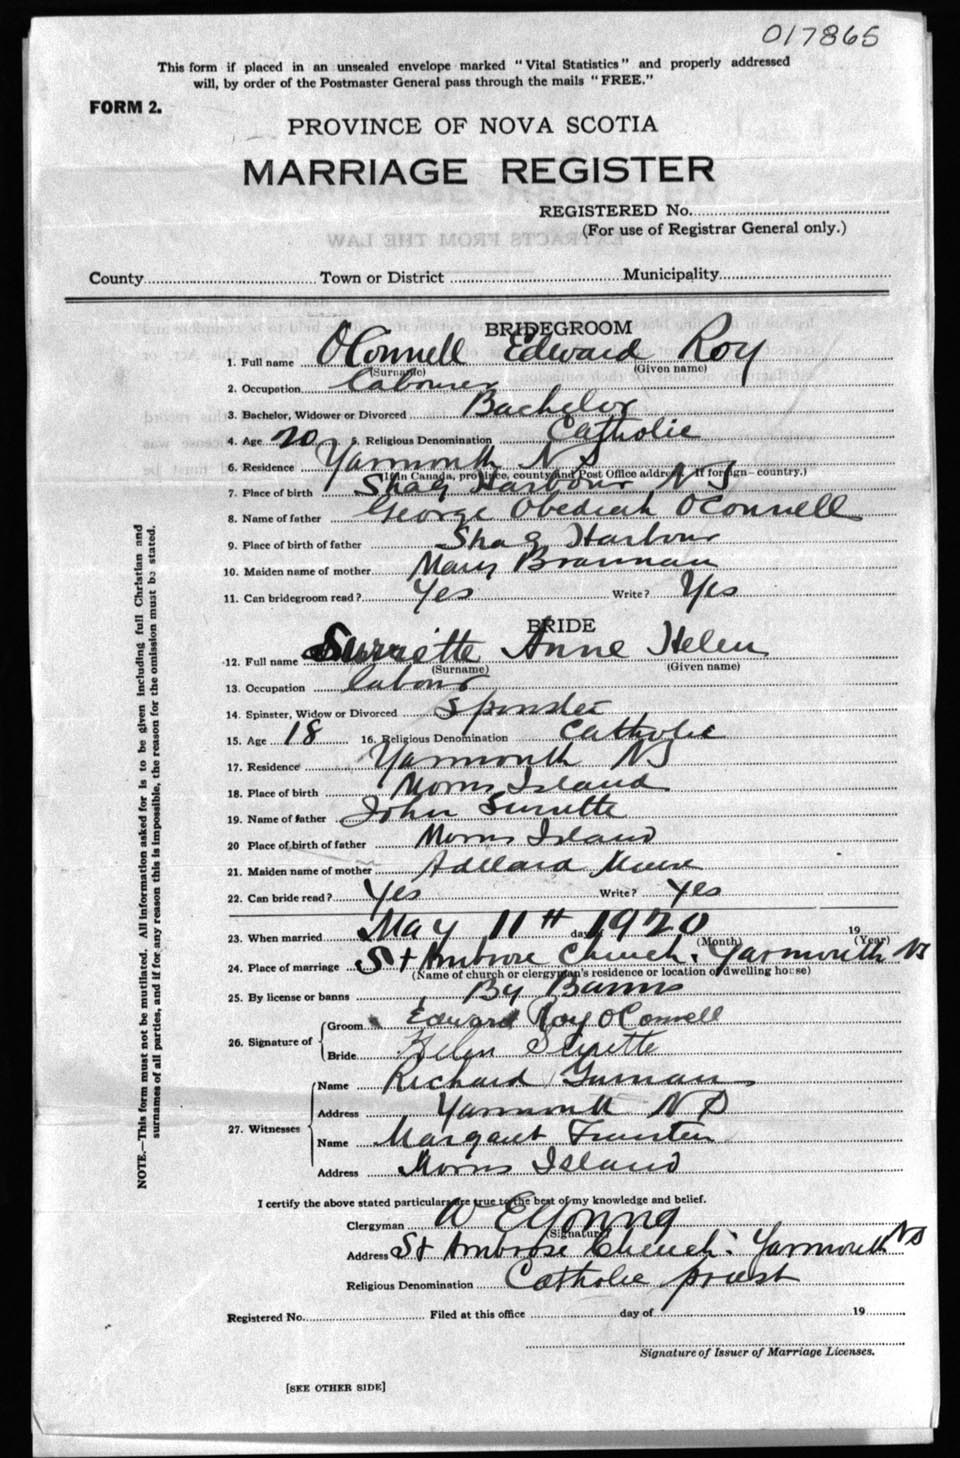 017865
This form if placed in an unsealed envelope marked "Vital Statistics" and properly addressed
will, by order of the Postmaster General pass through the mails "FREE."
FORM 2.
PROVINCE OF NOVA SCOTIA
MARRIAGE REGISTER
REGISTERED No.
(For use of Registrar General only.)
County Town or District Municipality
BRIDEGROOM
1. Full name OConnell Edward Roy
(Surname) (Given name)
2. Occupation labourer
3. Bachelor, Widower or Divorced Bachelor
4. Age 20 5. Religious Denomination Catholic
6. Residence Yarmouth NS
(If in Canada, province, county and Post Office address. If foreign—country.)
7. Place of birth Shag Harbour NS
8. Name of father George Obediah OConnell
9. Place of birth of father Shag Harbour
10. Maiden name of mother Mary Brannan
11. Can bridegroom read? Yes Write? Yes
BRIDE
12. Full name Surriette Anne Helen
(Surname) (Given name)
13. Occupation labour
14. Spinster, Widow or Divorced Spinster
15. Age 18 16. Religious Denomination Catholic
17. Residence Yarmouth NS
18. Place of birth Morris Island
19. Name of father John Surrette
20 Place of birth of father Morris Island
21. Maiden name of mother
22. Can bride read? Yes Write? Yes
23. When married May 11th 1920 day 19
(Month) (Year)
24. Place of marriage St Ambrose Church. Yarmouth NS
(Name of church or clergyman's residence or location of dwelling house)
25. By license or banns By Banns
26. Signature of Groom Edward Roy OConnell
Bride Helen Surette
27. Witnesses Name Richard
Address Yarmouth NS
Name Margaret
Address Morris Island
I certify the above stated particulars are true to the best of my knowledge and belief.
Clergyman W E Young
(Signature)
Address St Ambrose Church. Yarmouth NS
Religious Denomination Catholic priest
Registered No. Filed at this office day of 19
Signature of Issuer of Marriage Licenses.
[SEE OTHER SIDE]
NOTE.—This form must not be mutilated. All information asked for is to be given including full Christian and
surnames of all parties, and if for any reason this is impossible, the reason for the omission must be stated.